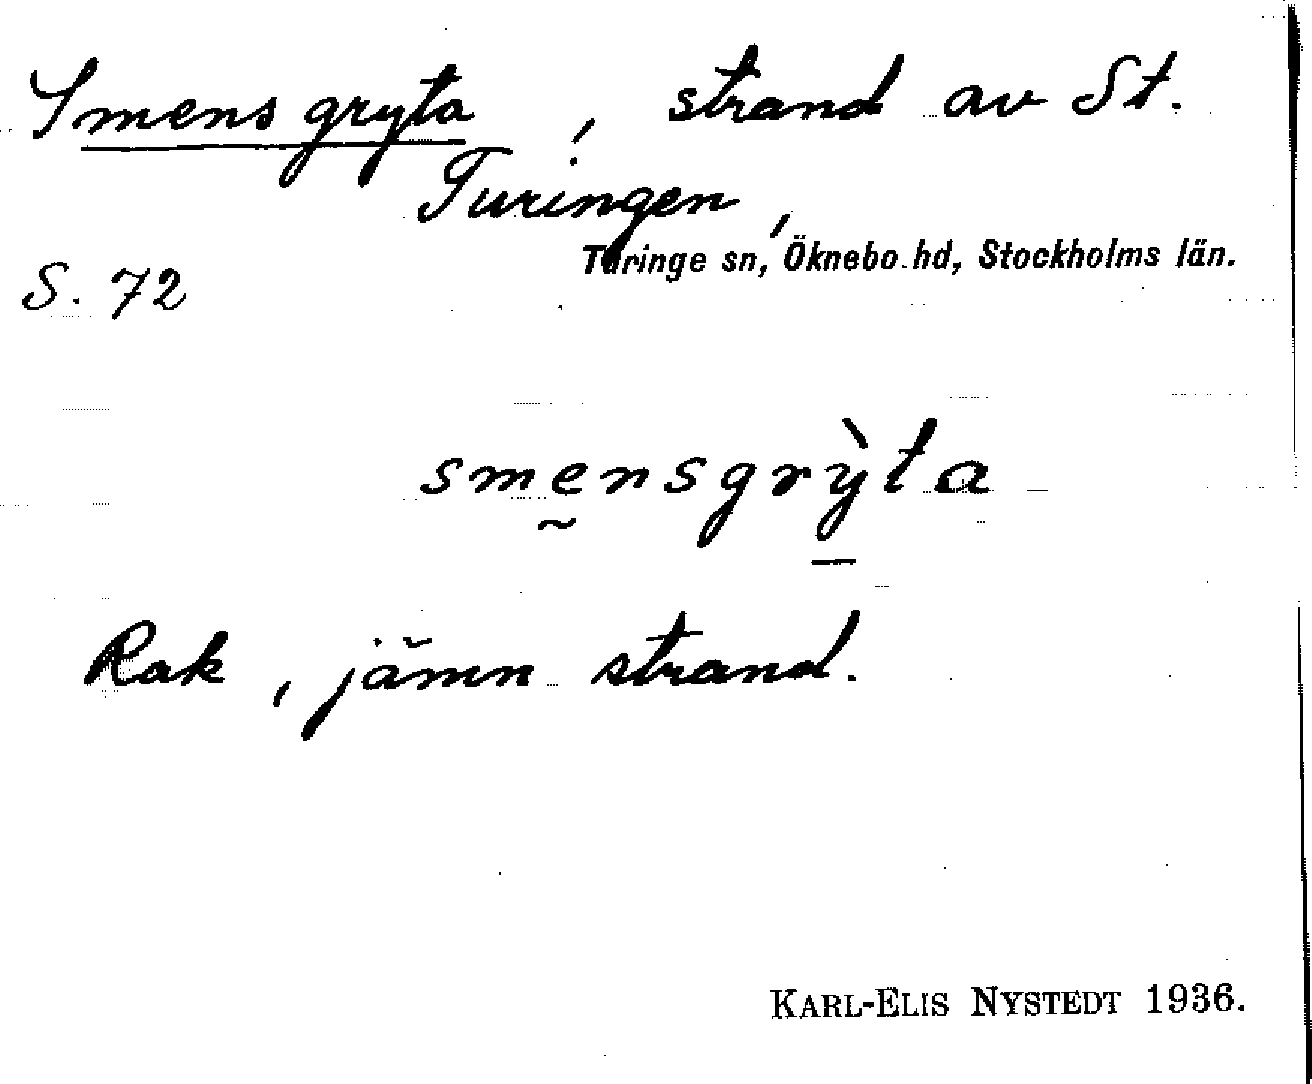 Smensgryta, strand av St.
Turingen,
Turinge sn, Öknebo hd, Stockholms län.
S. 72
smensgrỳta
Rak, jämn strand.
KARL-ELIS NYSTEDT 1936.